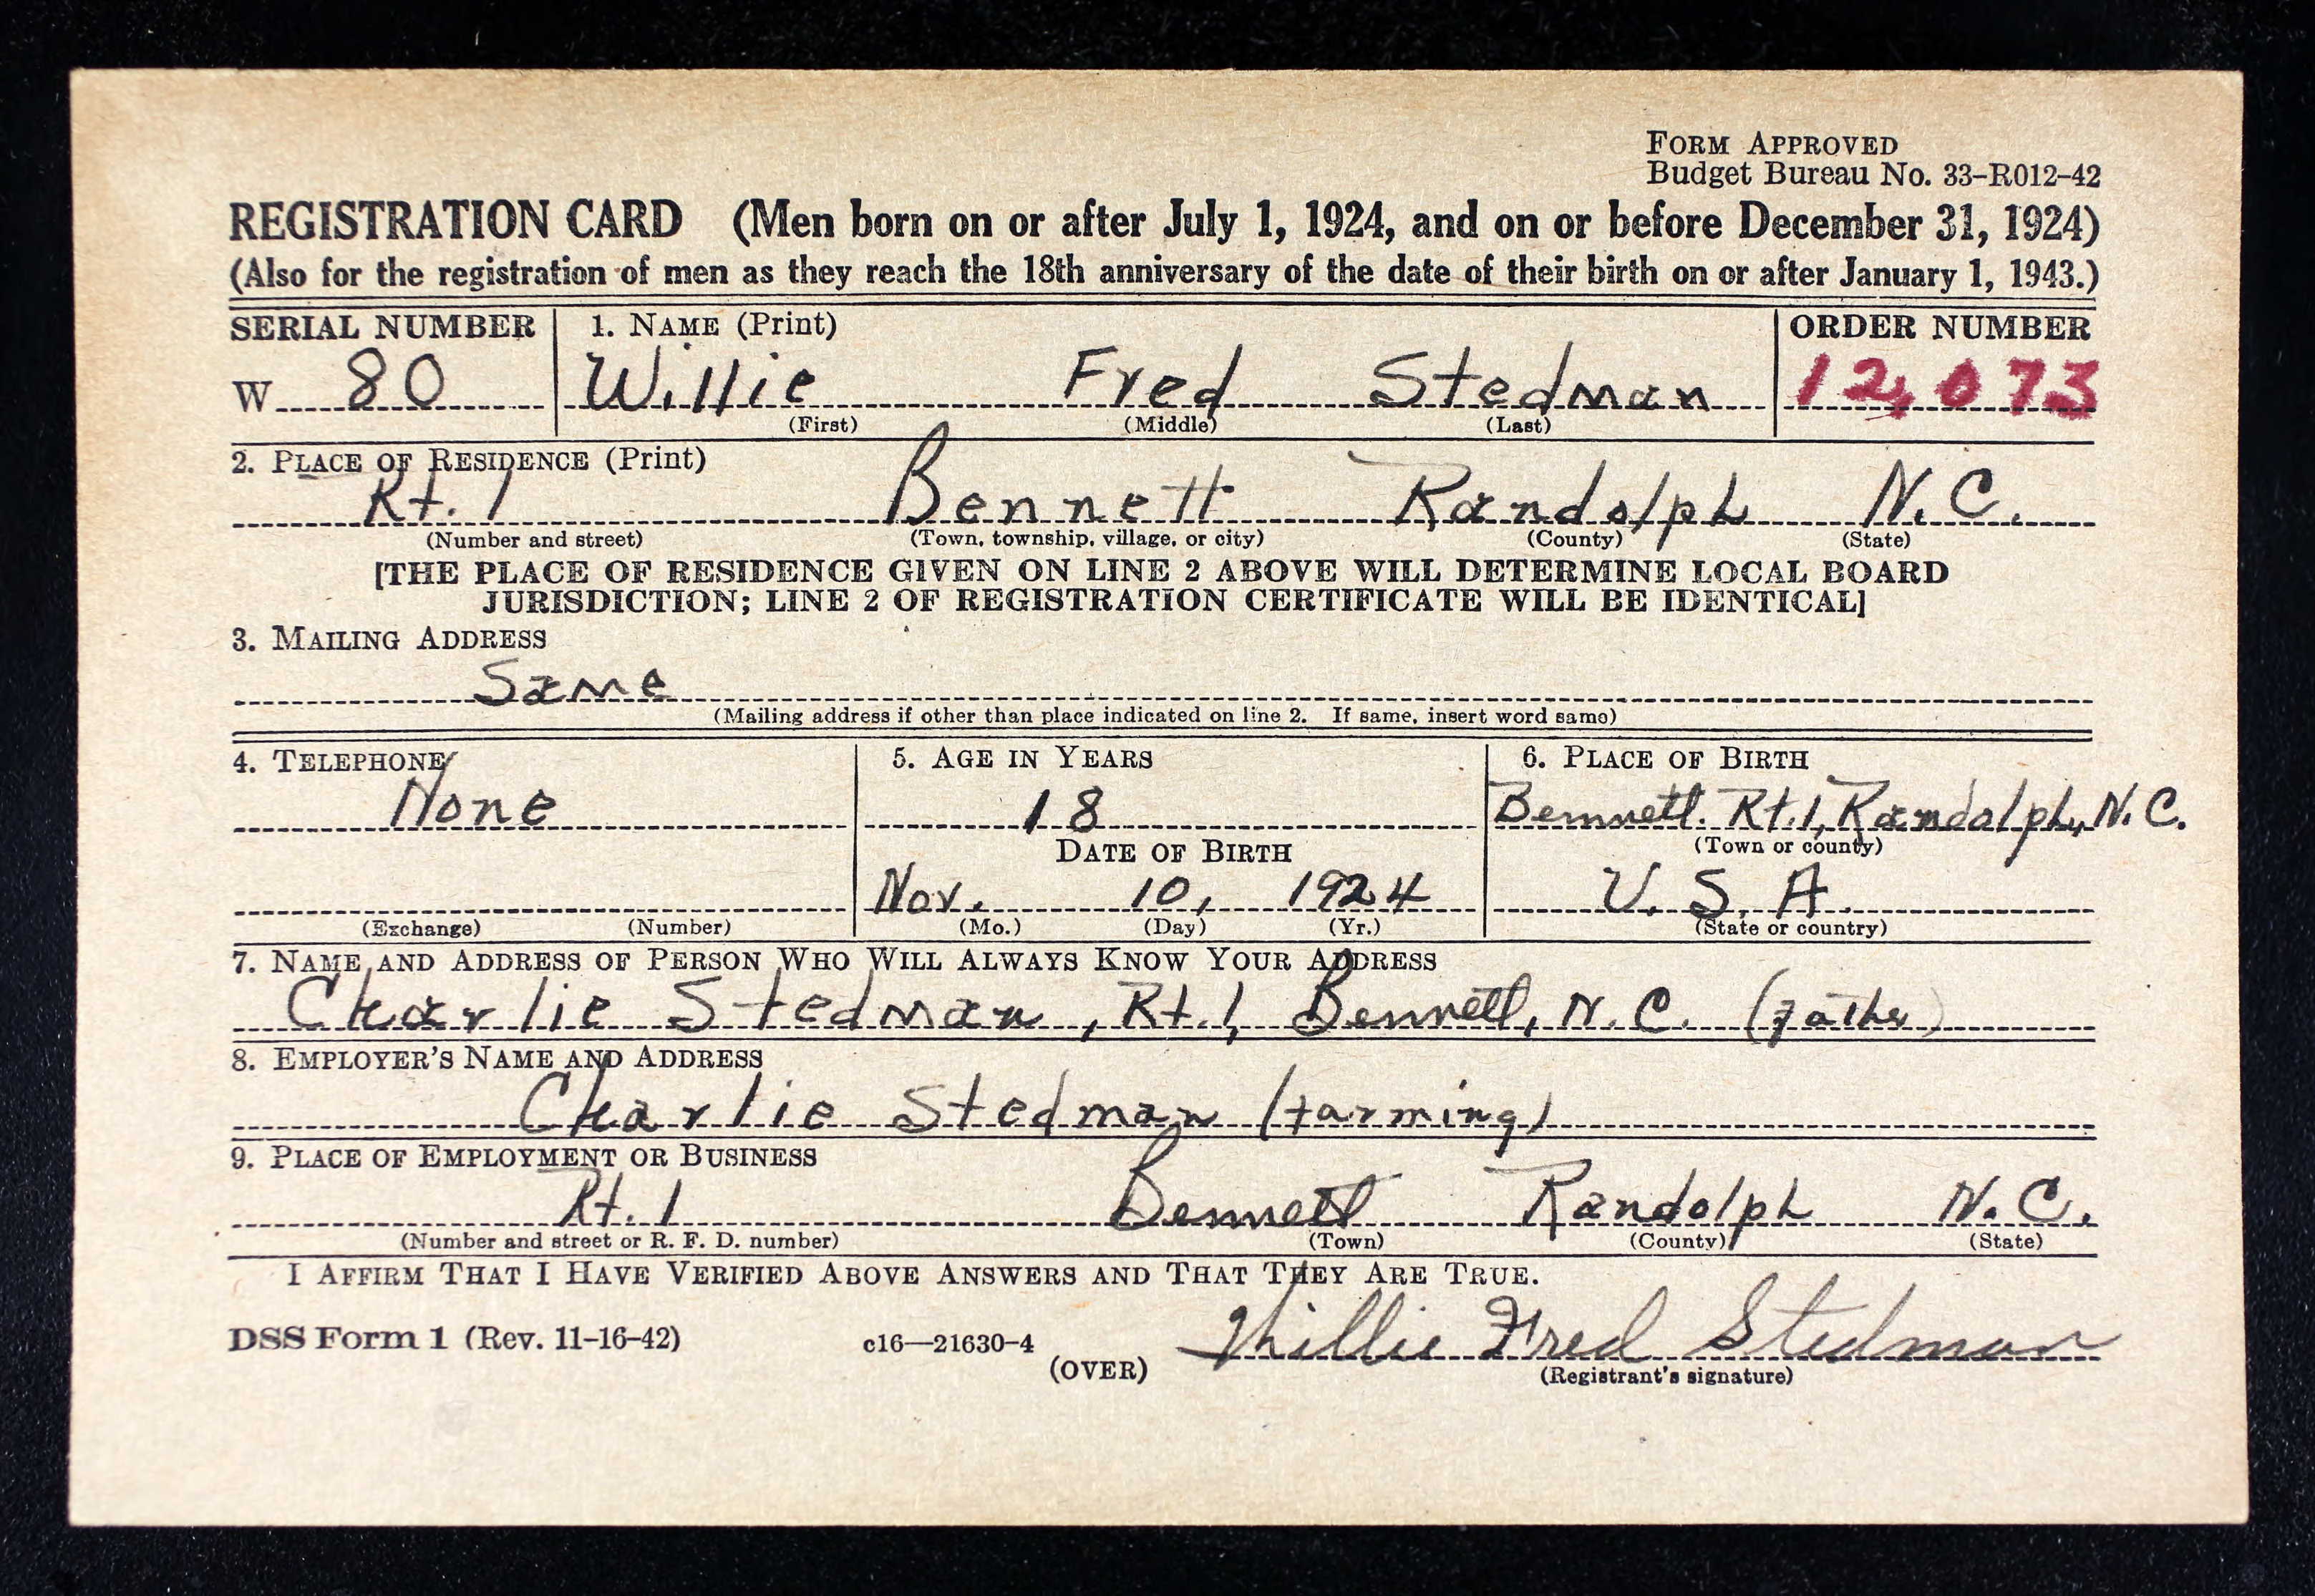 FORM APPROVED
Budget Bureau No. 33–R012–42
REGISTRATION CARD (Men born on or after July 1, 1924, and on or before December 31, 1924)
(Also for the registration of men as they reach the 18th anniversary of the date of their birth on or after January 1, 1943.)
SERIAL NUMBER 1. NAME (Print) ORDER NUMBER
W 80 Willie Fred Stedman 12,073
(First) (Middle) (Last)
2. PLACE OF RESIDENCE (Print)
Rt. 1 Bennett Randolph N.C.
(Number and street) (Town, township, village, or city) (County) (State)
[THE PLACE OF RESIDENCE GIVEN ON LINE 2 ABOVE WILL DETERMINE LOCAL BOARD
JURISDICTION; LINE 2 OF REGISTRATION CERTIFICATE WILL BE IDENTICAL]
3. MAILING ADDRESS
Same
(Mailing address if other than place indicated on line 2. If same, insert word same)
4. TELEPHONE 5. AGE IN YEARS 6. PLACE OF BIRTH
None 18 Bennett. Rt.1, Randolph, N.C.
DATE OF BIRTH (Town or county)
Nov. 10, 1924 U. S. A.
(Exchange) (Number) (Mo.) (Day) (Yr.) (State or country)
7. NAME AND ADDRESS OF PERSON WHO WILL ALWAYS KNOW YOUR ADDRESS
Charlie Stedman, Rt.1, Bennett, N.C. (father)
8. EMPLOYER'S NAME AND ADDRESS
Charlie Stedman (farming)
9. PLACE OF EMPLOYMENT OR BUSINESS
Rt. 1 Bennett Randolph N.C.
(Number and street or R. F. D. number) (Town) (County) (State)
I AFFIRM THAT I HAVE VERIFIED ABOVE ANSWERS AND THAT THEY ARE TRUE.
DSS Form 1 (Rev. 11–16–42) c16—21630–4 Willie Fred Stedman
(OVER) (Registrant's signature)